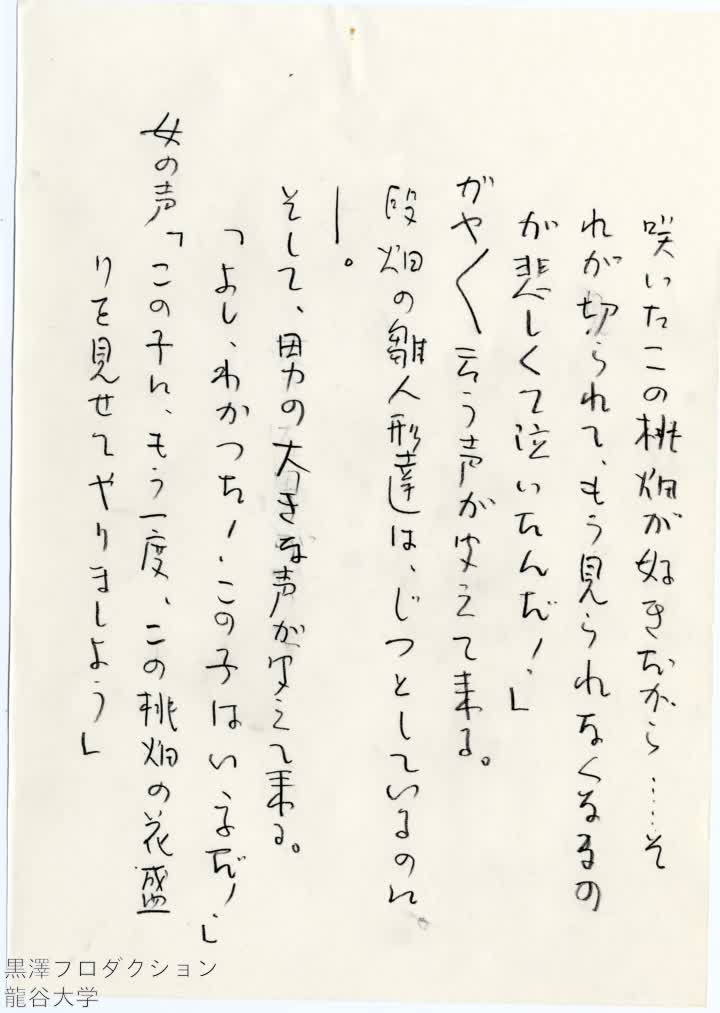 咲いたこの桃畑が好きだから……そ
れが切られて、もう見られなくなるの
が悲しくて泣いたんだ！」
ガヤ〱云う声が聞えて来る。
段畑の雛人形達は、じっとしているのに
―。
そして、男の大きな声が聞えて来る。
「よし、わかった！この子はいゝ子だ！」
女の声「この子に、もう一度、この桃畑の花盛
りを見せてやりましょう」
黒澤プロダクション
龍谷大学